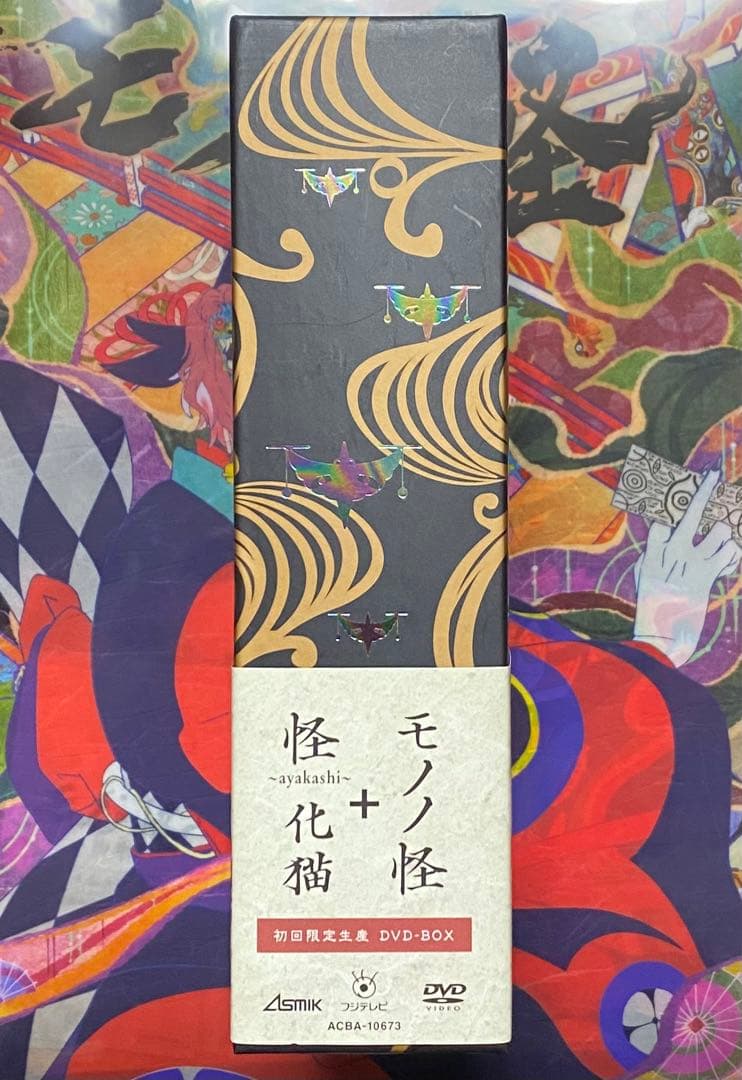 モノノ怪
+
怪
~ayakashi~
化猫
初回限定生産 DVD-BOX
ASMIK
フジテレビ
DVD
VIDEO
ACBA-10673